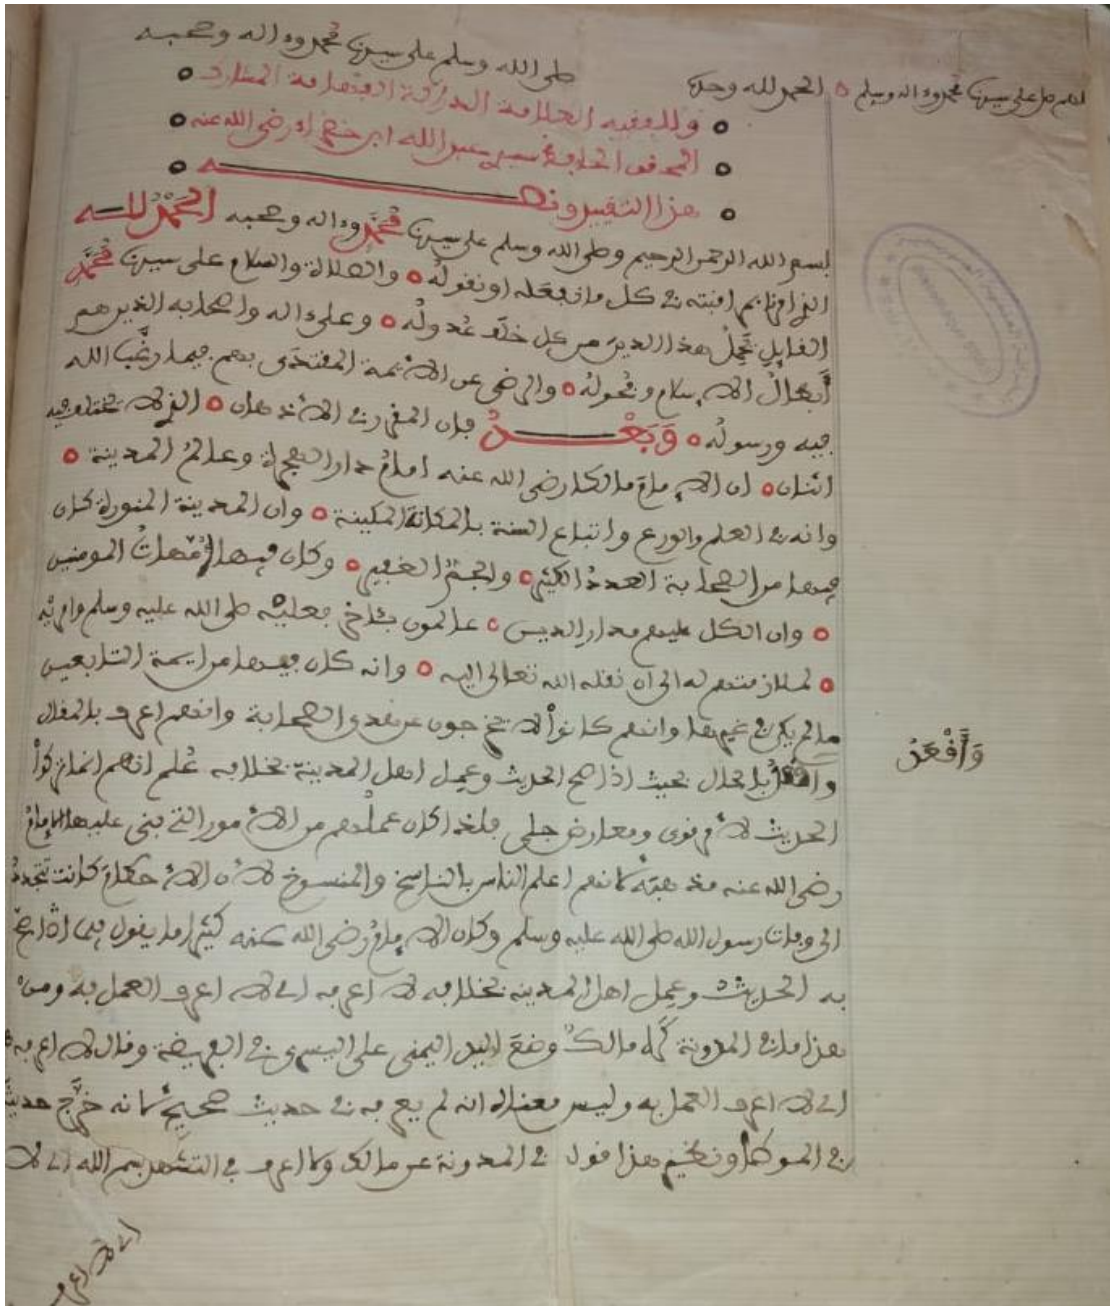 صلى الله وسلم على سيدنا محمد وءاله وصحبه
اللهم صل على سيدنا محمد وءاله وسلم الحمد لله وحده
وللفقيه العلامة الدراكة الفهامة المشارك
المحقق الحافظ سيدي عبد الله ابن خضراء رضي الله عنه
هذا التقييد ونصه
بسم الله الرحمن الرحيم وصلى الله وسلم على سيدنا محمد وءاله وصحبه الحمد لله
في كل ما نفعله أو نقوله والصلاة والسلام على سيدنا محمد
القايل يحمل هذا الدين من كل خلف عدوله وعلى ءاله واصحابه الذين هم
أبطال الإسلام وفحوله والرضى عن الائمة المقتدى بهم فيما رغب الله
فيه ورسوله وبعد فإن المقرر في الأذهان الذي لا يختلف فيه
اثنان ان الإمام مالكا رضي الله عنه امام دار الهجرة وعالم المدينة
وانه في العلم والورع واتباع السنة بالمكانة المكينة وان المدينة المنورة كان
فيها من الصحابة العدد الكثير والجم الغفير وكان فيها أمهات المومنين
وان الكل عليهم مدار الدين عالمون بئاخر فعليه صلى الله عليه وسلم وامريه
لملازمتهم له الى أن نقله الله تعالى اليه وانه كان فيها من ايمة التابعين
ما لم يكن في غيرها وانهم كانوا لا يخرجون عن هدي الصحابة وانهم اعرف بالمقال
وأقعد بالحال بحيث اذا صح الحديث وعمل اهل المدينة بخلافه علم انهم انما تركوا
وَأَقْعَدُ
الحديث لأمر قوي ومعارض جلي فلهذا كان عملهم من الأمور التي بنى عليها الإمام
رضي الله عنه مذهبه لأنهم اعلم الناس بالناسخ والمنسوخ لأن الأحكام كانت تتجدد
الى وفاة رسول الله صلى الله عليه وسلم وكان الإمام رضي الله عنه كثيرا ما يقول فيما اذا صح
به الحديث وعمل اهل المدينة بخلافه لا اعرفه اي لا اعرف العمل به ومن
هذا ما في المدونة كره مالك وضع اليد اليمنى على اليسرى في الفريضة وقال لا اعرفه
اي لا اعرف العمل به وليس معناه انه لم يعرفه في حديث صحيح لأنه خرج حديث
في الموطأ ونظير هذا قول في المدونة عن مالك ولا اعرف في التشهد بسم الله اي لا
اي لا اعرف